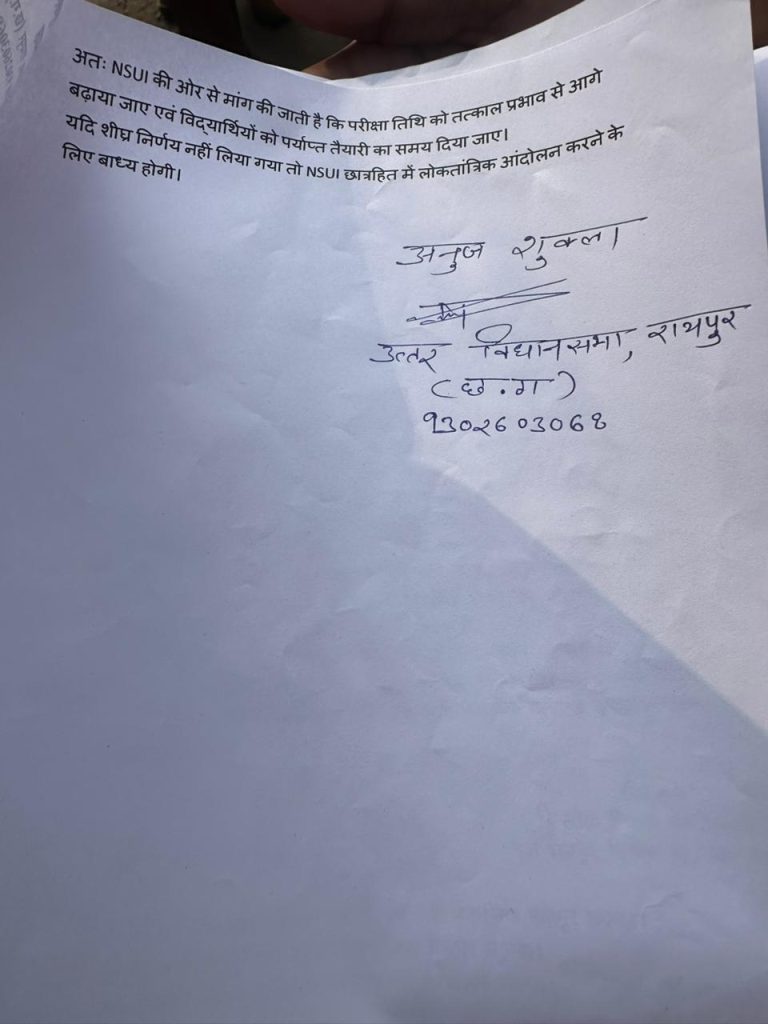 अतः NSUI की ओर से मांग की जाती है कि परीक्षा तिथि को तत्काल प्रभाव से आगे
बढ़ाया जाए एवं विद्यार्थियों को पर्याप्त तैयारी का समय दिया जाए।
यदि शीघ्र निर्णय नहीं लिया गया तो NSUI छात्रहित में लोकतांत्रिक आंदोलन करने के
लिए बाध्य होगी।
अनुज शुक्ला
उत्तर विधानसभा, रायपुर
(छ.ग)
9302603068